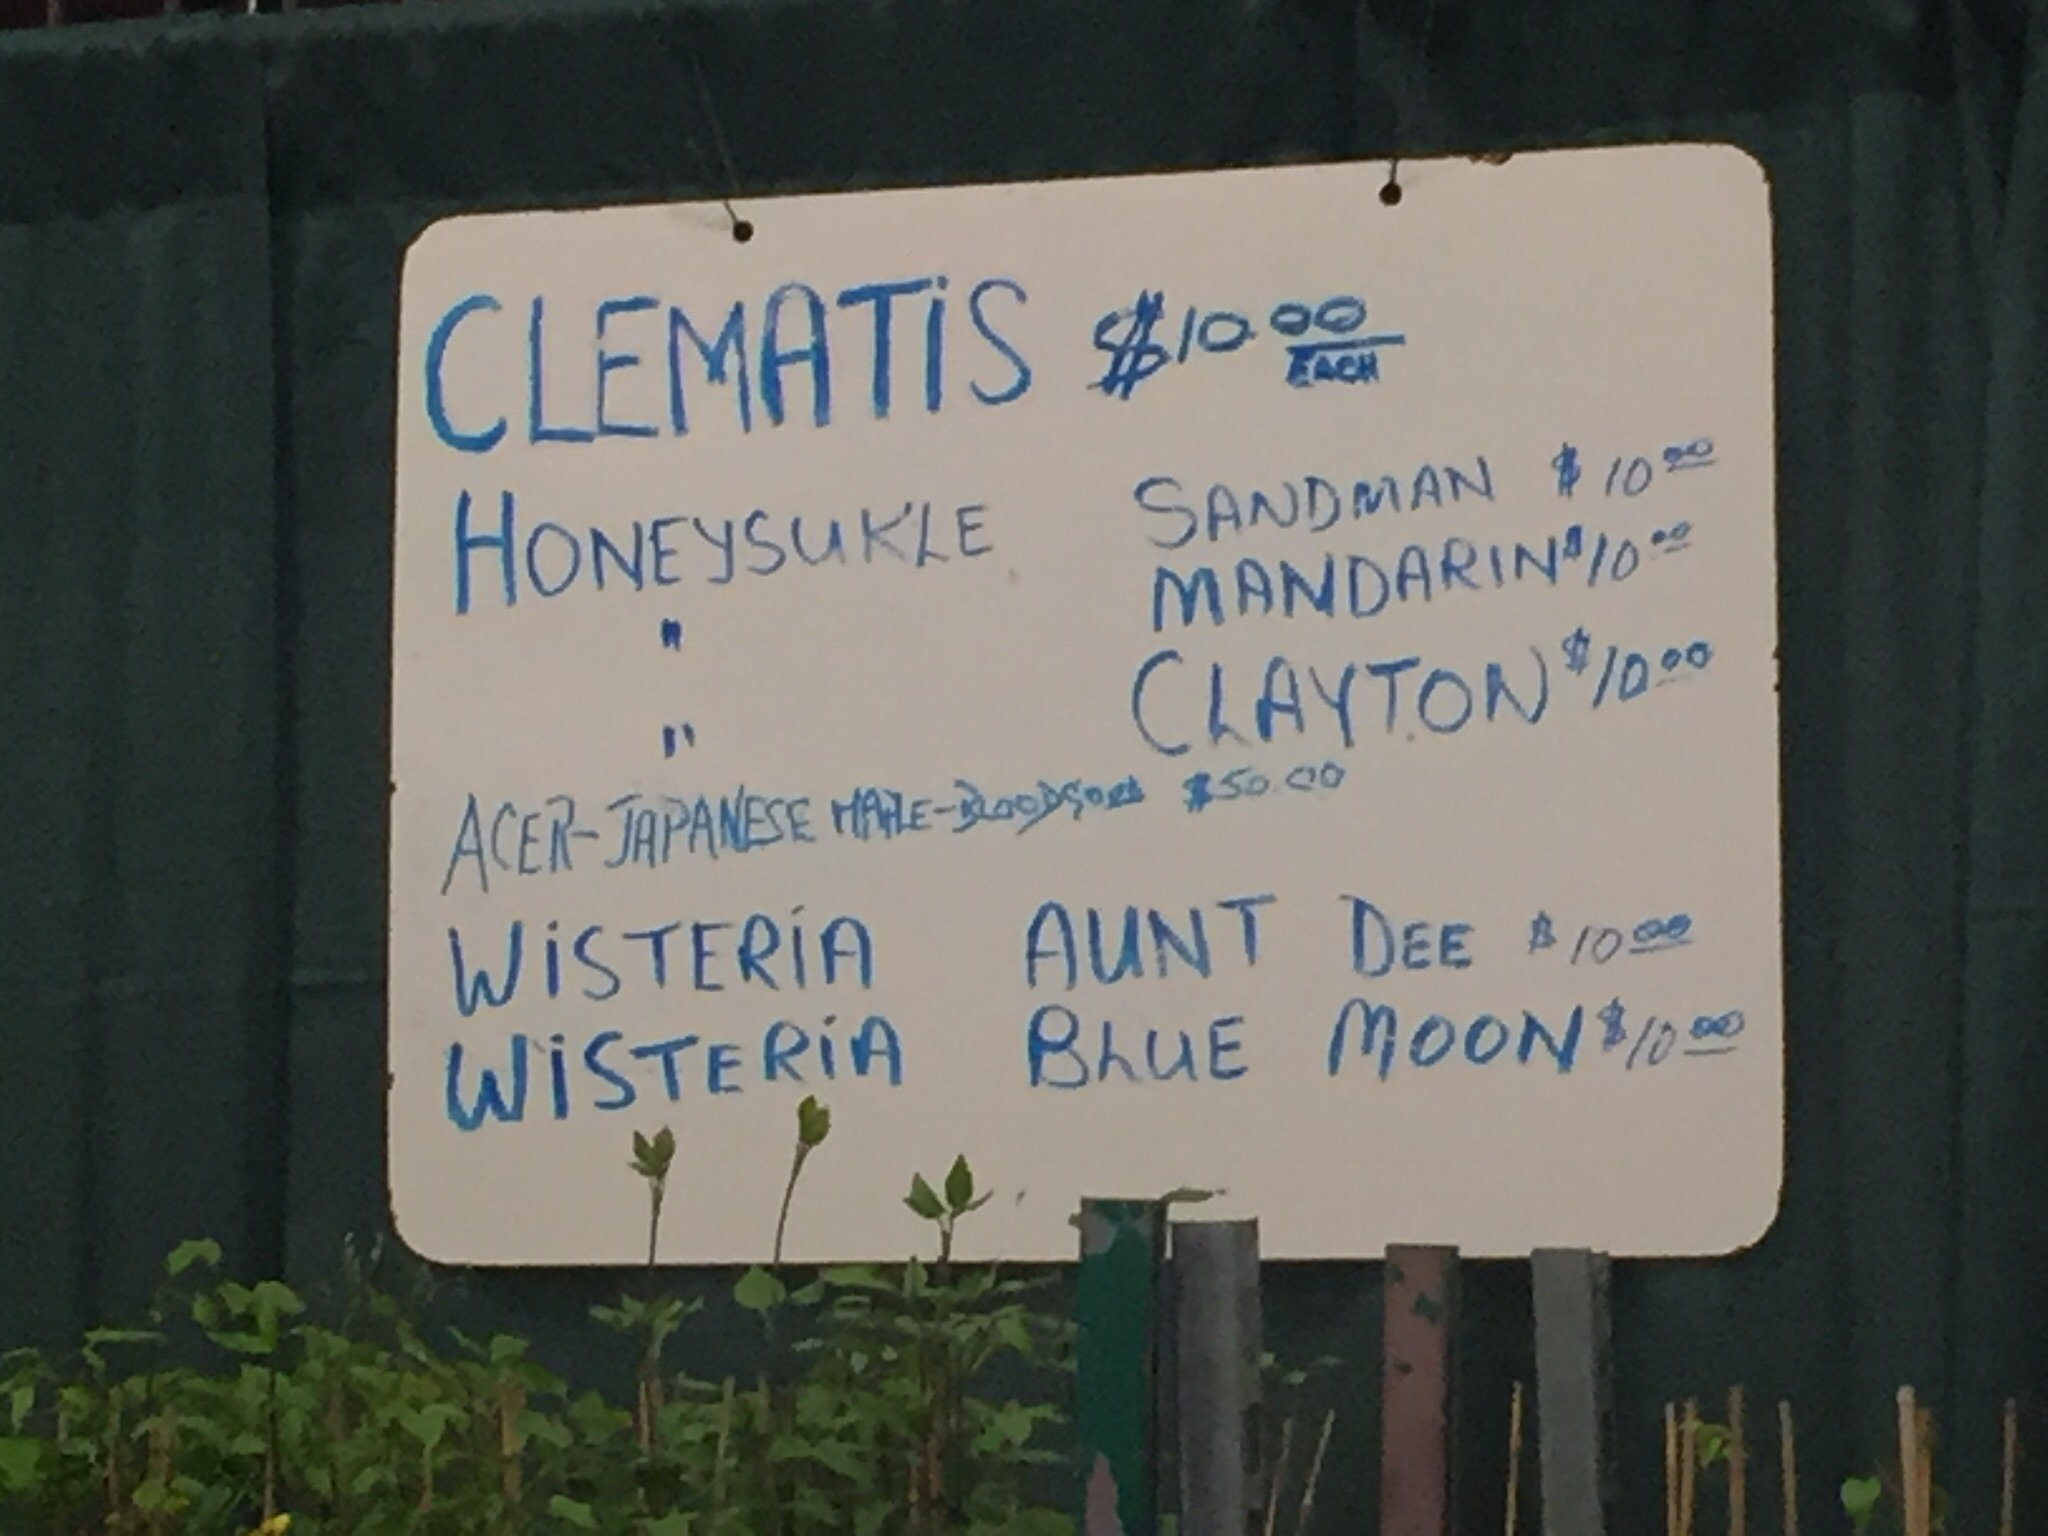 CLEMATIS $10.00 EACH
HONEYSUK'LE SANDMAN $10.00
" MANDARIN $10.00
" CLAYTON $10.00
ACER-JAPANESE MAPLE-BLOODGOOD $50.00
WISTERIA AUNT DEE $10.00
WISTERIA BLUE MOON $10.00